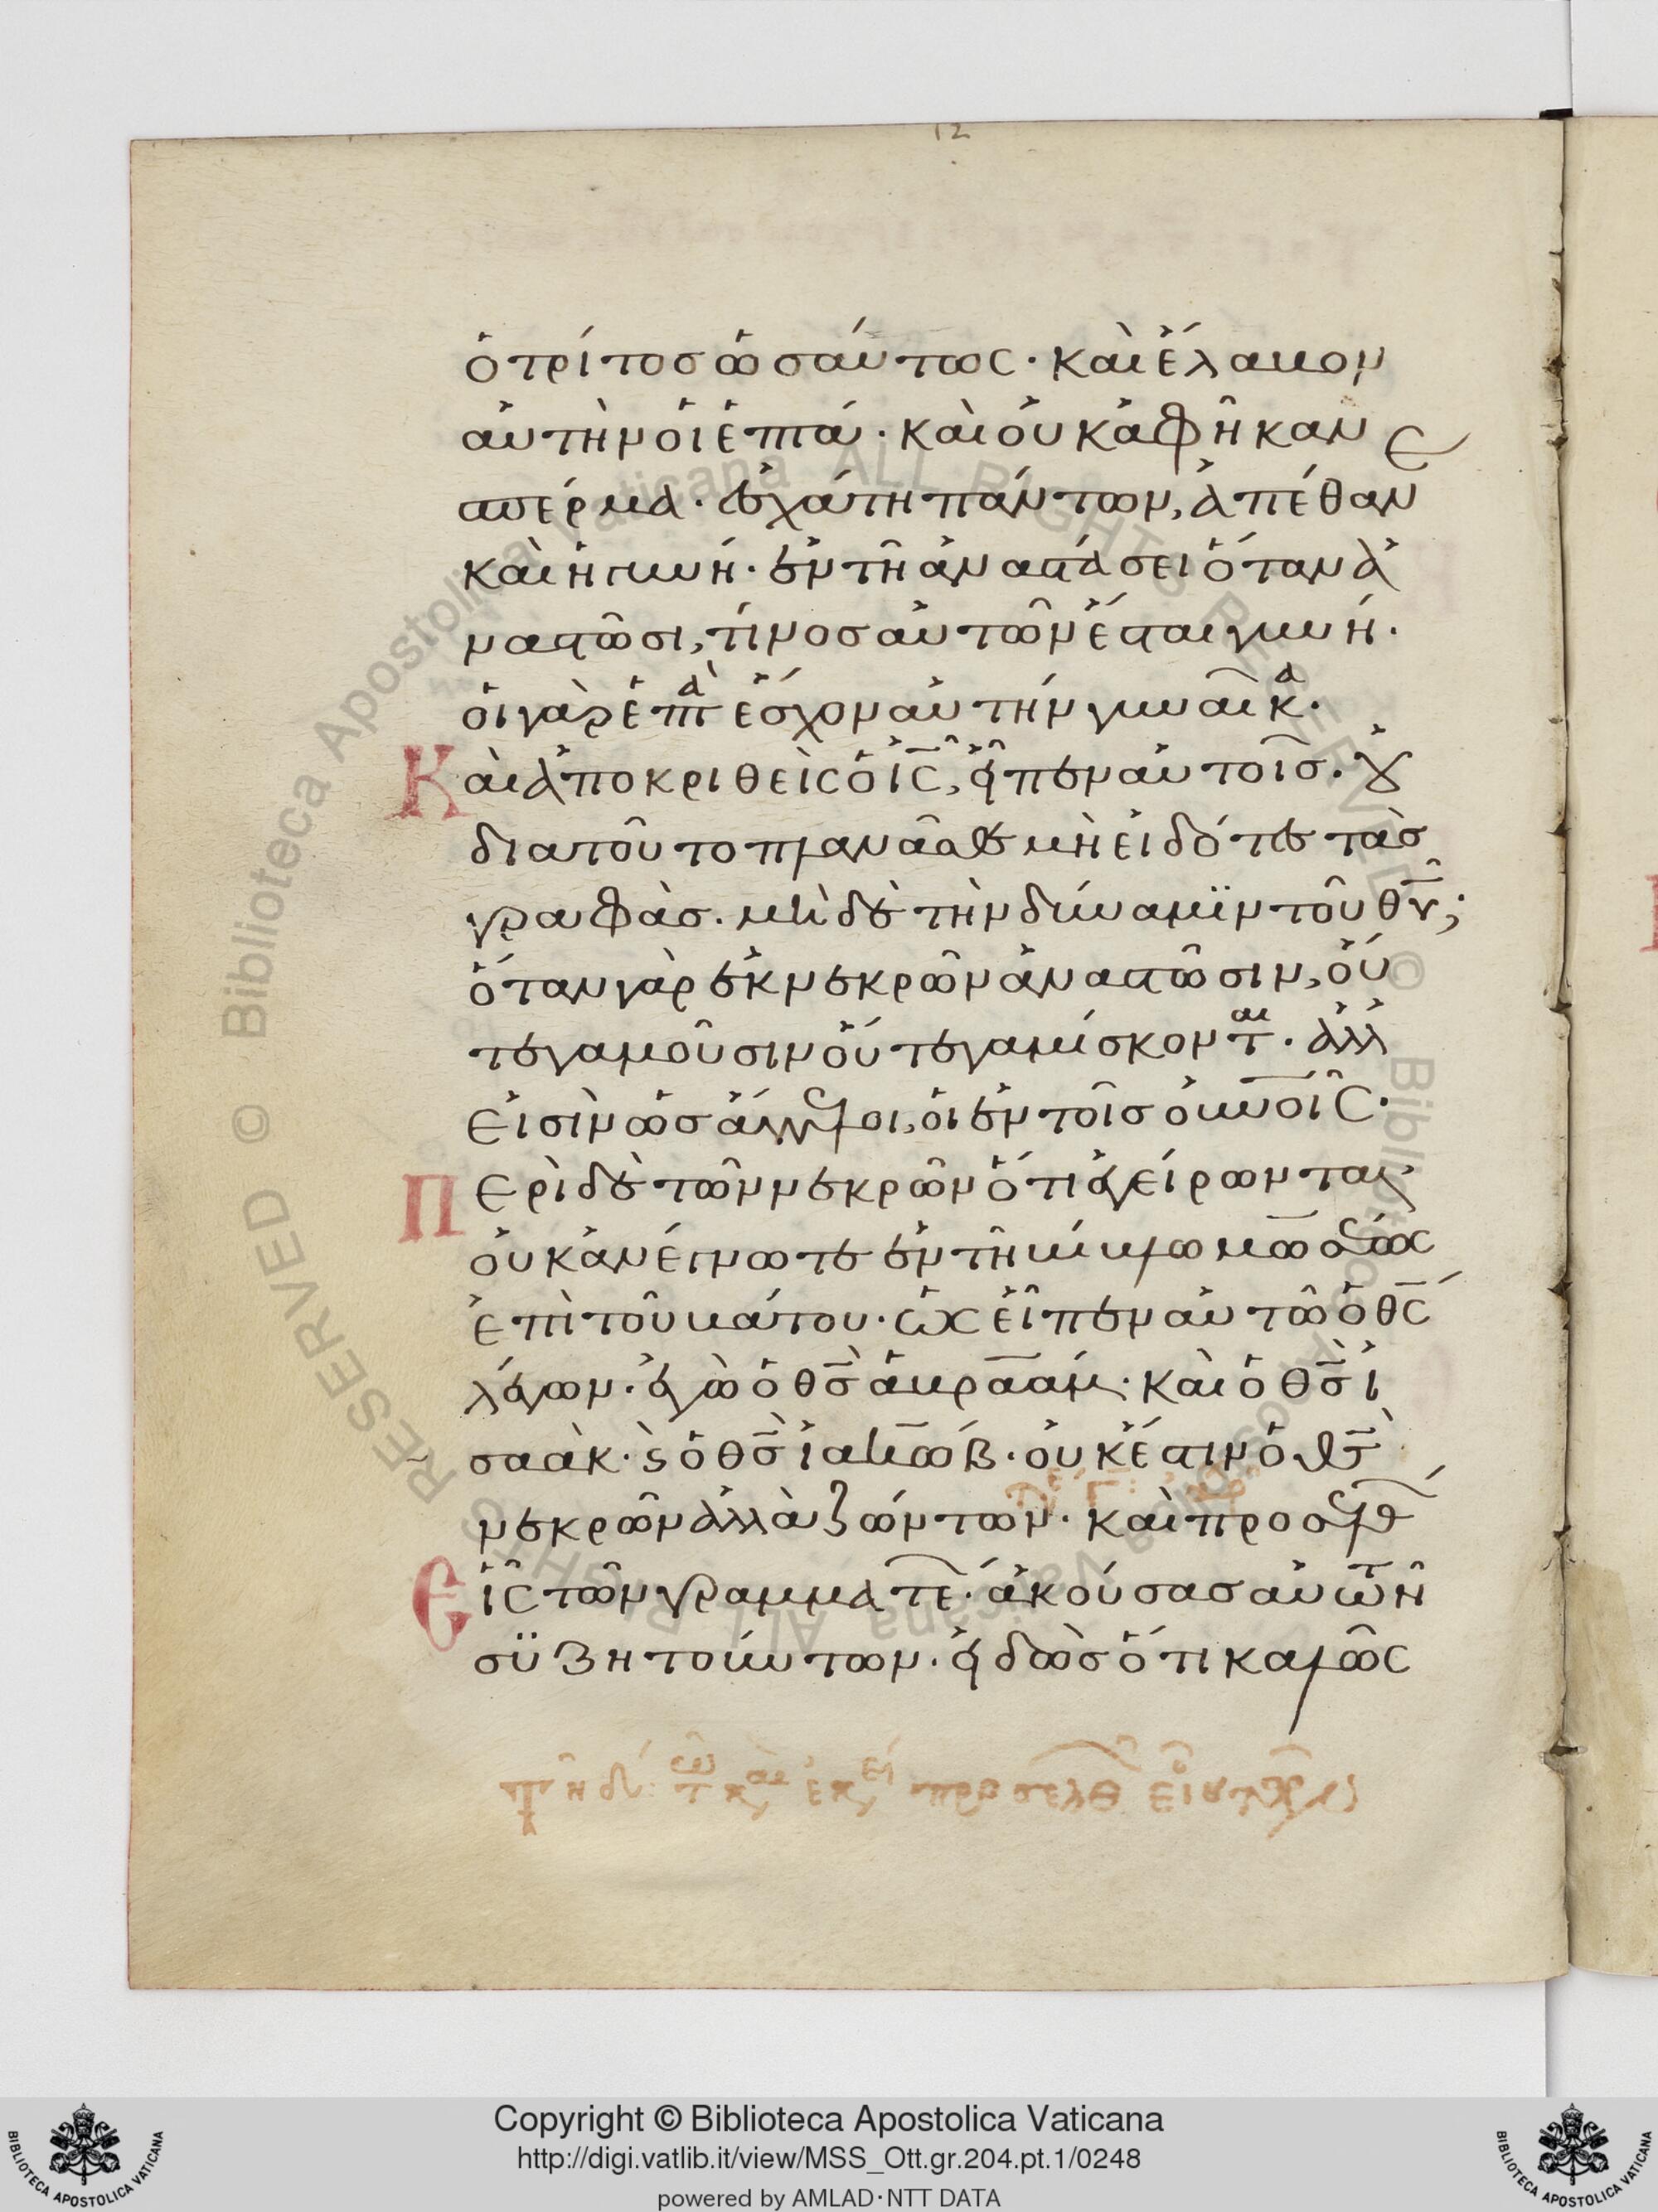 12
ὁ τρίτος ὡσαύτως· καὶ ἔλαβον
αὐτὴν οἱ ἑπτά· καὶ οὐκ ἀφῆκαν
σπέρμα· ἐσχάτη πάντων, ἀπέθαν
καὶ ἡ γυνή· ἐν τῇ ἀναστάσει ὅταν ἀ
ναστῶσι, τίνος αὐτῶν ἔσται γυνή·
οἱ γὰρ ἑπτὰ ἔσχον αὐτὴν γυναῖκα·
Καὶ ἀποκριθεὶς ὁ ις, εἶπεν αὐτοῖς· οὐ
διατοῦτο πλανᾶσθε μὴ εἰδότες τὰς
γραφὰς· μηδὲ τὴν δύναμιν τοῦ θυ;
ὅταν γὰρ ἐκ νεκρῶν ἀναστῶσιν, οὔ
τε γαμοῦσιν οὔτε γαμίσκονται· ἀλλ
εἰσὶν ὡς ἄγγελοι, οἱ ἐν τοῖς οὐνοῖς·
Περὶ δὲ τῶν νεκρῶν ὅτι ἐγείρωνται·
οὐκ ἀνέγνωτε ἐν τῇ βίβλω μωσέως
ἐπὶ τοῦ βάτου· ὡς εἶπεν αὐτῶ ὁ θς
λέγων· ἐγὼ ὁ θς ἀβραάμ· καὶ ὁ θς ἰ
σαὰκ· ϗ ὁ θς ἰακώβ· οὐκ ἔστιν ὁ θς
νεκρῶν ἀλλὰ ζώντων· καὶ προσελθ
εἷς τῶν γραμματε· ἀκούσας αὐτῶν
συζητούντων· εἰδὼς ὅτι καλῶς
Copyright © Biblioteca Apostolica Vaticana
http://digi.vatlib.it/view/MSS_Ott.gr.204.pt.1/0248
powered by AMLAD·NTT DATA